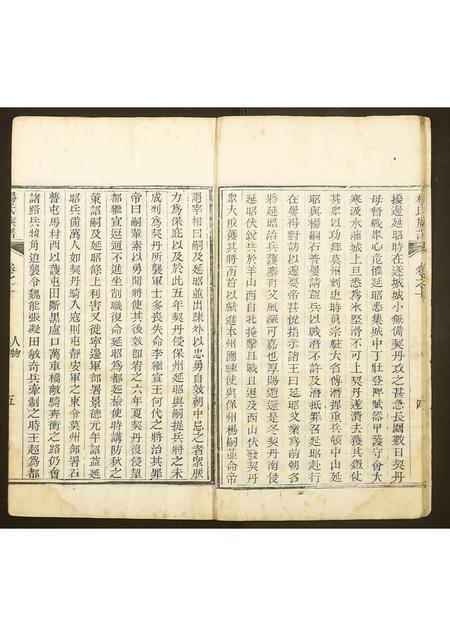 擾邊延昭時在遂城城小無備契丹攻之甚急長圍數日契丹
母督戰衆心危懼延昭悉集城中丁壯登陴賦器甲護守會大
寒汲水灌城上旦悉爲冰堅滑不可上契丹遂潰去獲其鎧仗
甚眾以功拜莫州刺史時眞宗駐大名傅潛握重兵頓中山延
昭與楊嗣石普屢請益兵以戰潛不許及潛抵罪召延昭赴行
在屢得對訪以邊要帝甚悅指示諸王曰延昭父業爲前朝名
將延昭治兵護塞有父風深可嘉也厚賜遣還是冬契丹南侵
延昭伏銳兵於羊山西自北掩擊且戰且退及西山伏發契丹
眾大敗獲其將函首以獻進本州團練使與保州楊嗣並命帝
謂宰相曰嗣及延昭並出疎外以忠勇自效朝中忌之者眾朕
力爲保庇以及於此五年契丹侵保州延昭與嗣提兵將之未
成列爲契丹所襲軍士多喪失命李繼宣王何代之將治其罪
帝曰嗣輩素以勇聞將使其後效卽宥之六年夏契丹復侵望
都繼宣逗遛不進坐削職復命延昭爲都巡檢使時講防秋之
策詔嗣及延昭條上利害又徙寧邊軍部署景德元年詔益延
昭兵備萬人如契丹騎入寇則屯靜安軍之東令莫州部署石
普屯馬村西以護屯田斷黑盧口萬車橋敵騎奔衝之路仍會
諸路兵犄角追襲令魏能張凝田敏奇兵牽制之時王超爲都
人物
五
四